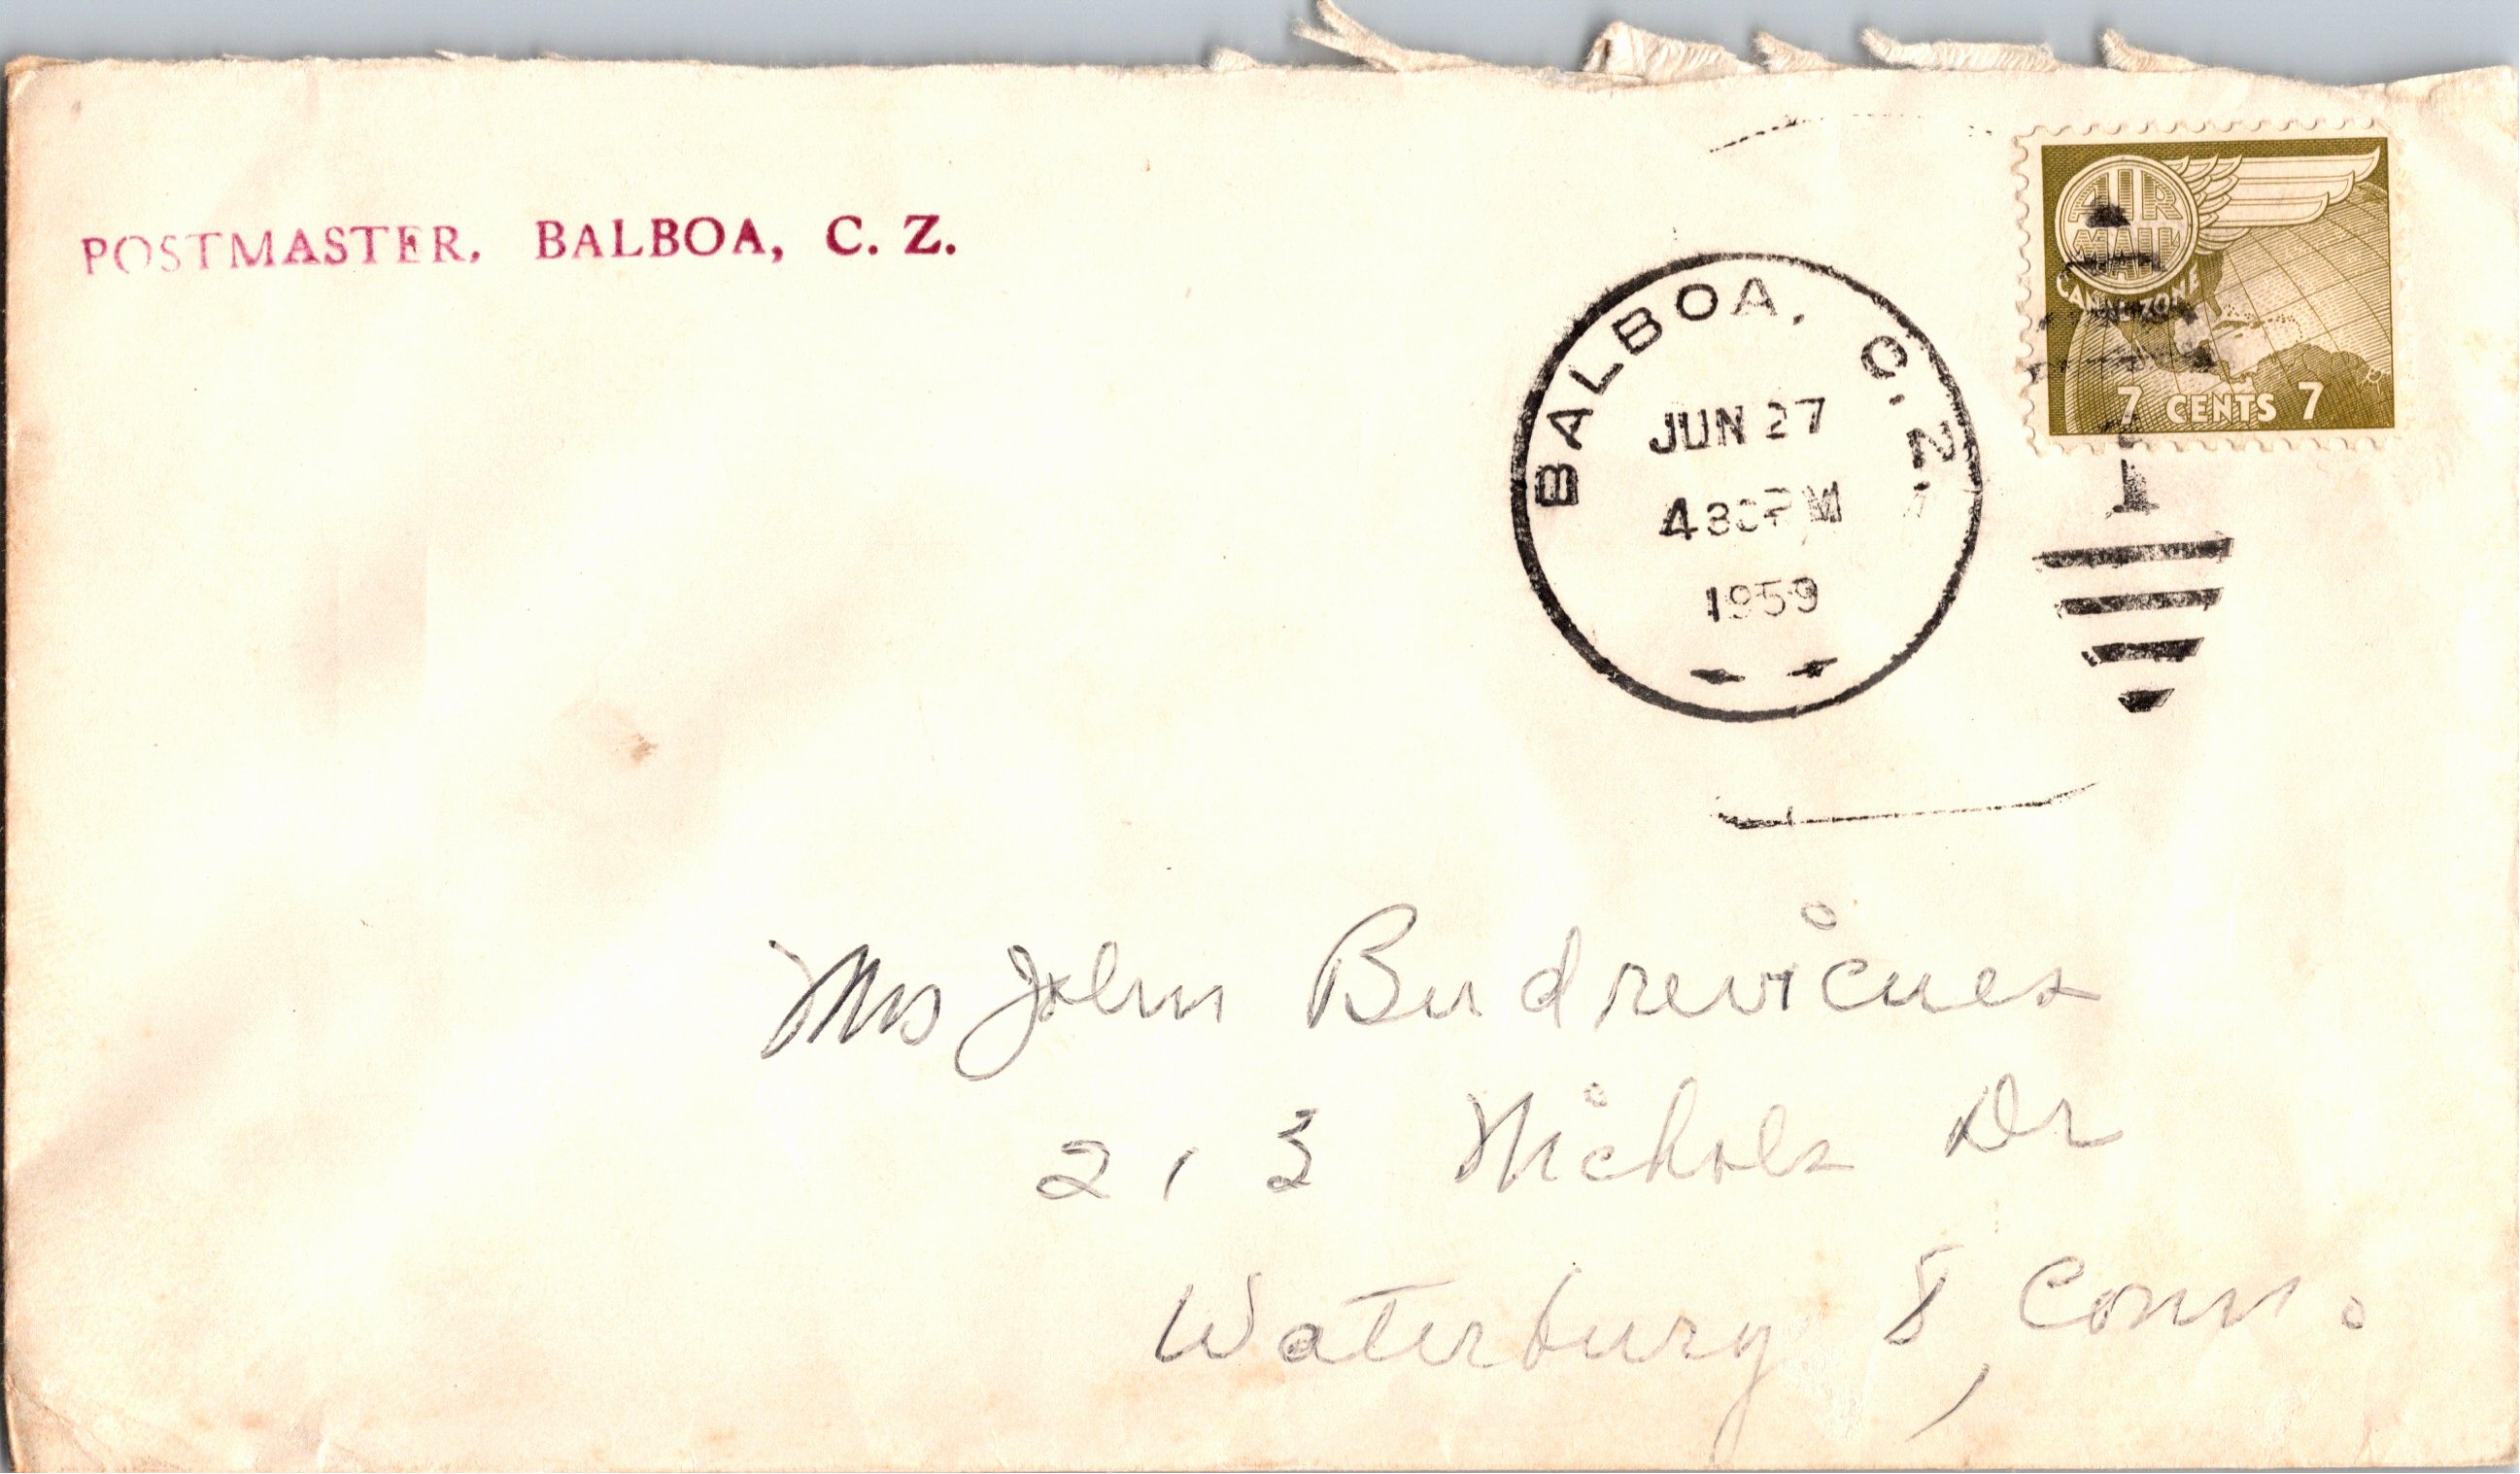 POSTMASTER, BALBOA, C. Z.
BALBOA, C. Z.
JUN 27
4 30 PM
1959
AIR
MAIL
CANAL ZONE
7 CENTS 7
Mrs John Budrevicues
213 Nichols Dr
Waterbury 8, Conn.